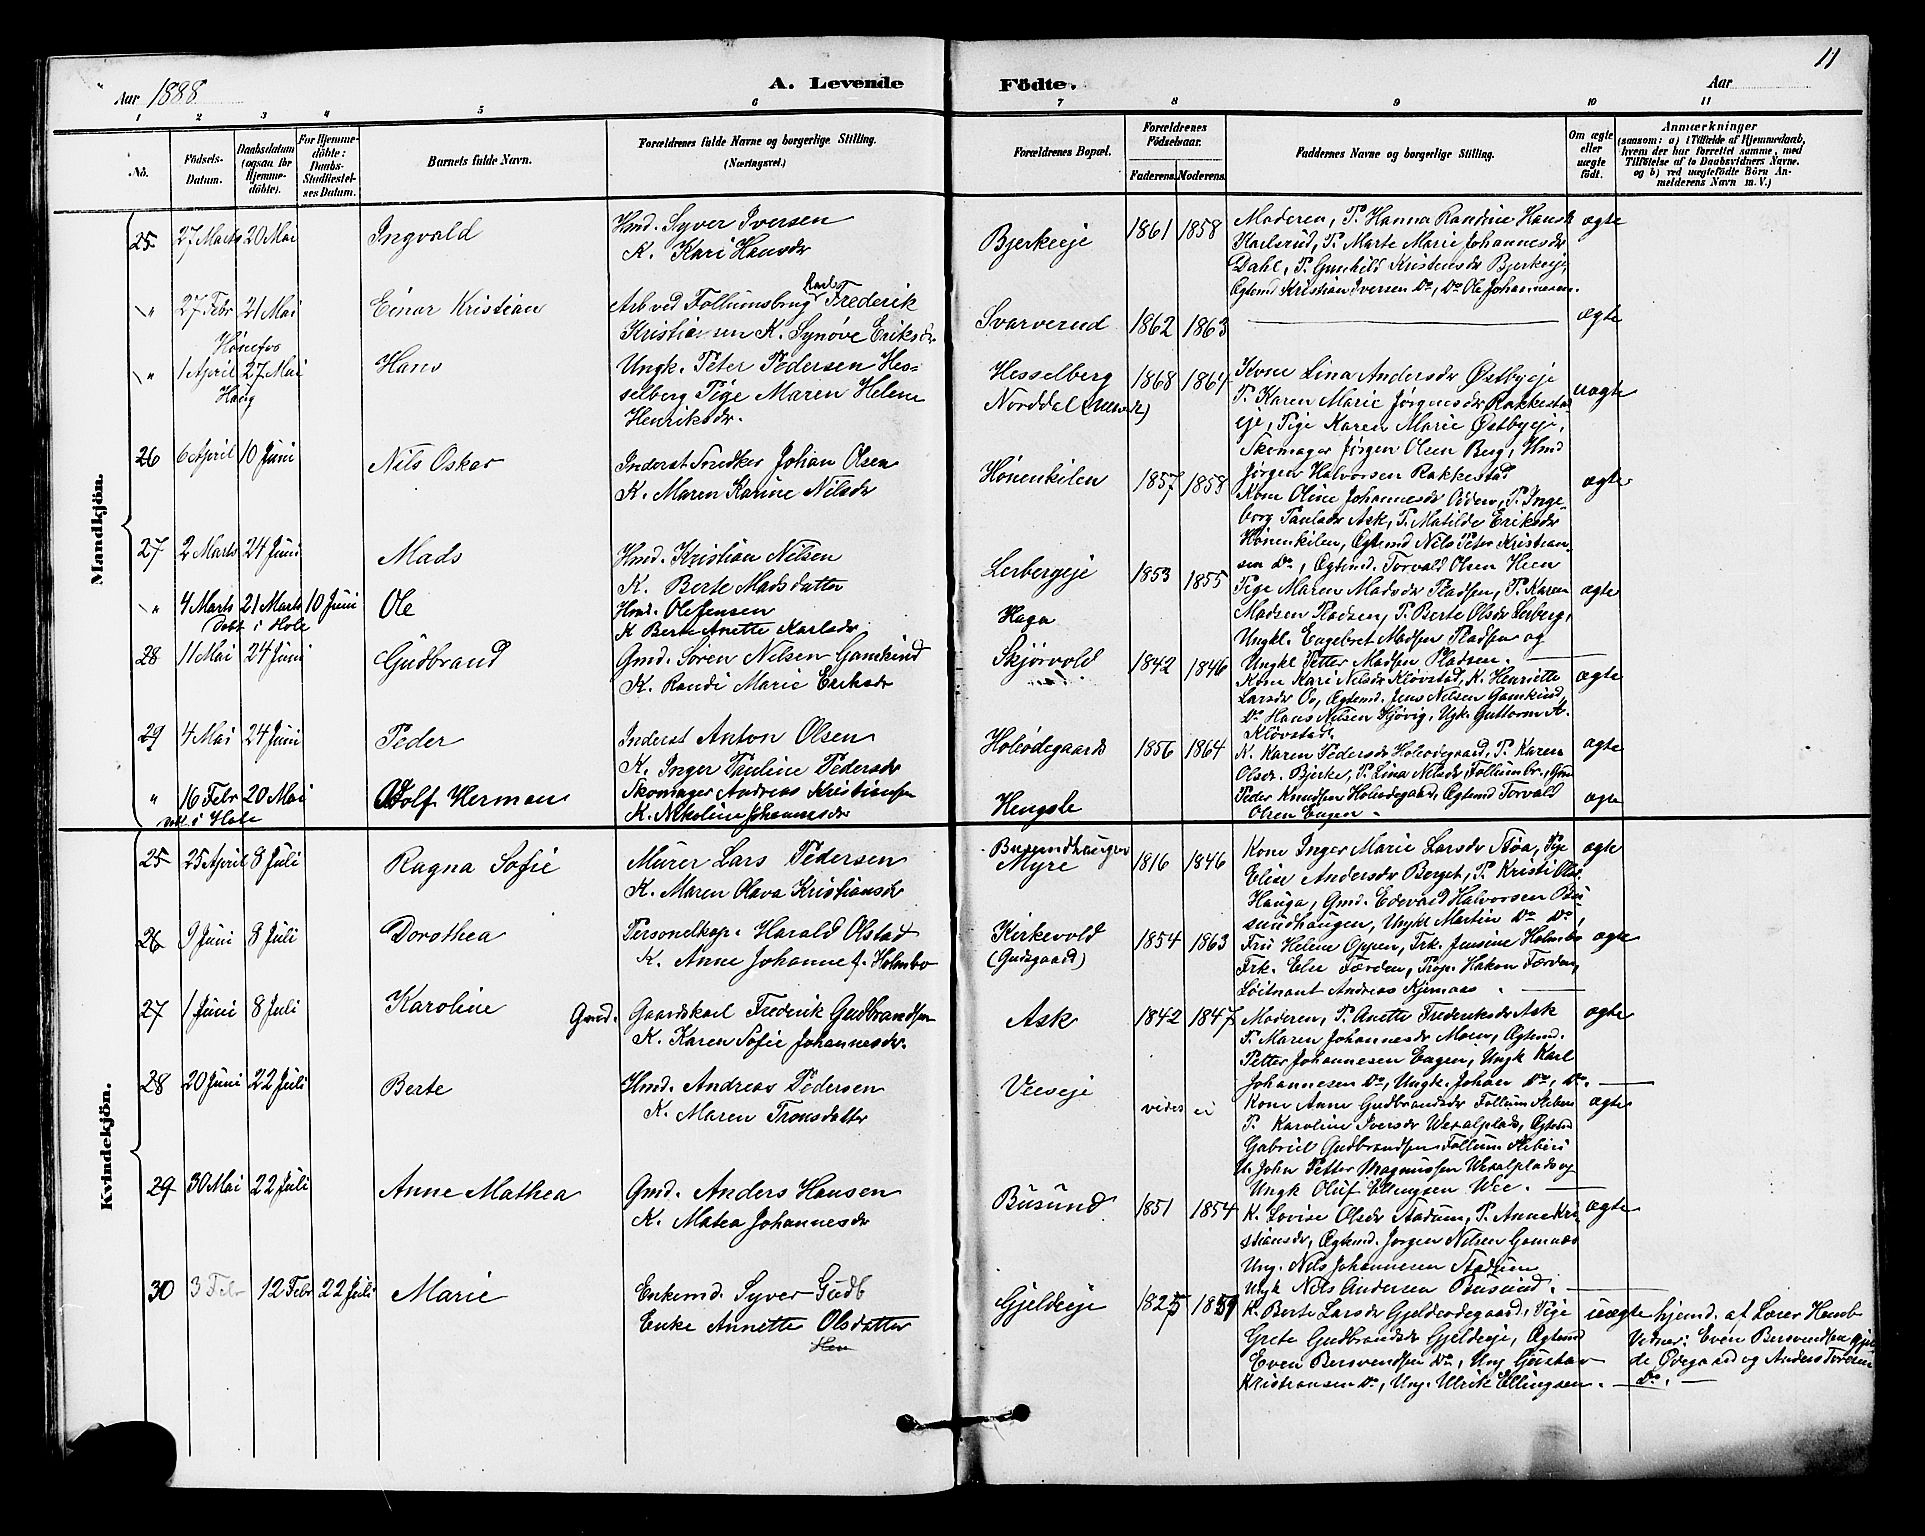 11
Aar 1888 A. Levende Födte. Aar
1 2 3 4 5 6 7 8 9 10 11
No. Födsels-Datum. Daabsdatum (ogsaa for Hjemmedöbte). For Hjemmedöbte: Daabs Stadfæstelses Datum. Barnets fulde Navn. Forældrenes fulde Navne og borgerlige Stilling. (Næringsvei.) Forældrenes Bopæl. Forældrenes Födselsaar. Faderens. Moderens. Faddernes Navne og borgerlige Stilling. Om ægte eller uægte födt. Anmærkninger
(saasom: a) i Tilfælde af Hjemmedaab, hvem der har forrettet samme, med Tilföielse af to Daabsvidners Navne. og b) ved uægtefödte Börn Anmelderens Navn m. V.)
Mandkjön.
25 27 Marts 20 Mai Ingvald Hmd. Syver Iversen
K. Kari Hansdr
Bjerkeeje 1861 1858 Moderen, P. Hanna Randine Hansdr
Karlsrud, P. Marte Marie Johannesdr
Dahl, P. Gunhild Kristensdr Bjerkeeje,
Ægtemd Kristian Iversen Do, Do Ole Johannesen.
ægte
" 27 Febr 21 Mai Einar Kristian Arb ved Follumsbrug Karl Frederik
Hönefos
Kristiansen K. Synöve Eriksdr
Svarverud 1862 1863 ægte
" 1 April 27 Mai Hans Ungk. Peter Pedersen Hes-
Haug
selberg Pige Maren Helene
Henriksdr.
Hesselberg
Norddal
1868 1861 Kone Lina Andersdr Østbyeje
P. Karen Marie Jørgensdr Rakkestad
eje, Pige Karen Marie Østbyeje,
Skomager Jörgen Olsen Berg, Hmd
Jörgen Halvorsen Rakkestad
uægte
26 6 April 10 Juni Nils Oskar Inderst Snedker Johan Olsen
K. Maren Karine Nilsdr
Hönenkilen 1857 1858 Kone Oline Johannesdr Odden, P. Inge-
borg Paulsdr Ask, P. Matilde Eriksdr
Hönenkilen, Ægtemd Nils Peter Kristian-
sen Do, Ægtemd. Torvald Olsen Heen
ægte
27 2 Marts 24 Juni Mads Hmd. Kristian Nilsen
K. Berte Madsdatter
Lerbergeje 1853 1855 Pige Maren Madsdr Pladsen, P. Karen
Madsen Pladsen, P. Berte Olsdr Lerberg,
Ungkl. Engebret Madsen Pladsen og
Ungkl Petter Madsen Pladsen.
ægte
" 4 Marts 21 Marts 10 Juni Ole Hmd. Ole Jensen
Döbt i Hole
K Berte Anette Karlsdr
Haga
28 11 Mai 24 Juni Gudbrand Gmd. Sören Nilsen Gamkind
K. Randi Marie Eriksdr
Skjörvold 1842 1846 Kone Kari Nilsdr Klövstad, K. Henriette
Larsdr Do, Ægtemd. Jens Nilsen Gamkind,
Do Hans Nilsen Hjövig, Ugk. Guttorm A.
Klövstad.
ægte
29 4 Mai 24 Juni Peder Inderst Anton Olsen
K. Inger Pauline Pedersdr
Holeödegaard 1856 1864 K. Karen Pedersdr Holeödegaard, P. Karen
Olsdr. Bjerke, P. Lina Nilsdr Follumbr., Gmd
Peder Knudsen Holeödegaard, Ægtemd Torvald
Olsen Engen.
ægte
" 16 Febr 20 Mai Adolf Herman Skomager Andreas Kristiansen
döbt i Hole
K. Nikoline Johannesdr
Hengsle ægte
Kvindekjön.
25 25 April 8 Juli Ragna Sofie Murer Lars Pedersen
K. Maren Olava Kristiansdr
Busundhaugen
Myre
1816 1846 Kone Inger Marie Larsdr Stöa, Pige
Elise Andersdr Berget, P. Kristi Olsdr
Hauga, Gmd. Edevard Halvorsen Bu-
sundhaugen, Ungkl Martin Do Do,
ægte
26 9 Juni 8 Juli Dorothea Personelkap. Harald Olstad
K. Anne Johanne f. Holmbo
Kirkevold
(Gudsgaard)
1854 1863 Fru Helene Oppen, Frk. Jensine Holmbo
Frk. Else Færden, Prop. Hakon Færden,
Löitnant Andreas Kjernaas.
ægte
27 1 Juni 8 Juli Karoline Gmd. Gaardskarl Frederik Gudbrandsen
K. Karen Sofie Johannesdr.
Ask 1842 1847 Moderen, P. Anette Frederiksdr Ask
P. Maren Johannesdr Moen, Ægtemd.
Petter Johannesen Engen, Ungk Karl
Johannesen Do, Ungk. Johan Do, Do.
ægte
28 20 Juni 22 Juli Berte Hmd. Andreas Pedersen
K. Maren Tronsdatter
Veeseje vides ei Kone Anne Gudbrandsdr Follum Sliberi
P. Karoline Iversdr Weralplads, Ægtemd
Gabriel Gudbrandsen Follum Sliberi
U. John Petter Magnussen Weralplads og
Ungk Oluf Ellingsen Wee.
ægte
29 30 Mai 22 Juli Anne Mathea Gmd. Anders Hansen
K. Matea Johannesdr
Busund 1851 1854 K. Lovise Olsdr Stadum, P. Anne Kri-
stiansdr, Ægtemd. Jörgen Nilsen Gomnæs
Ung. Nils Johannesen Stadum
Ungk Nils Andersen Busund.
ægte
30 3 Febr 12 Febr 22 Juli Marie Enkemd. Syver Gudb
Enke Annette Olsdatter
Hen
Gjeldeeje 1825 1851 K. Berte Larsdr Gjeldeödegaard, Pige
Grete Gudbrandsdr Gjeldeeje, Ægtemd
Even Bersvendsen Do, Ung Gustav
Kristiansen Do, Ung. Ulrik Ellingsen.
uægte hjemd. af Lærer Hemb
Vidner: Even Bersvendsen Gjel-
de Ødegaard og Anders Toresen
Do.